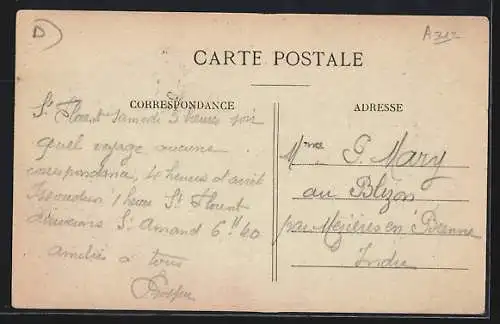 D
A 312
CARTE POSTALE
CORRESPONDANCE
ADRESSE
St Florent Samedi 3 heures soir
quel voyage aucune
correspondance, 4 heures d'arrêt
Issoudun 1 heure St Florent
St Amand 6 H 40
amitiés à tous
Mme P. Mary
au Blizon
par Mézières en Brenne
Indre